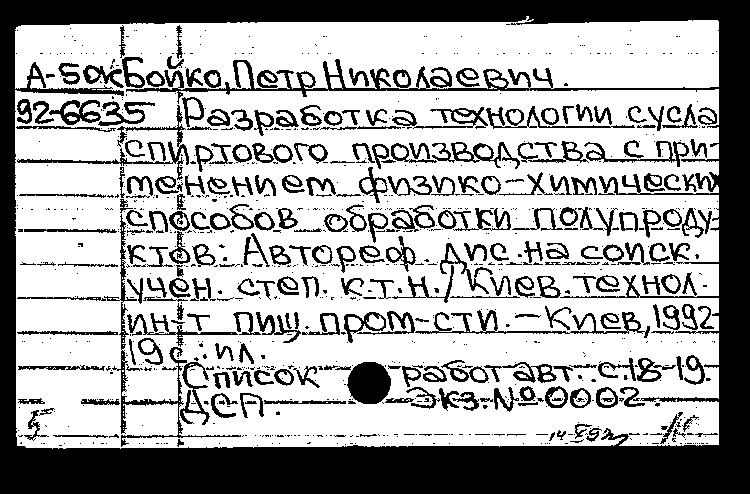 А-50к Бойко, Петр Николаевич.
92-6635 Разработка технологии сусла
спиртового производства с при-
менением физико-химических
способов обработки полупроду-
ктов: Автореф. дис. на соиск.
учен. степ. к.т.н. / Киев. технол.
ин-т пищ. пром-сти. - Киев, 1992-
19 с.: ил.
Список работ авт.: с. 18-19.
ДСП. Экз. № 0002.
5